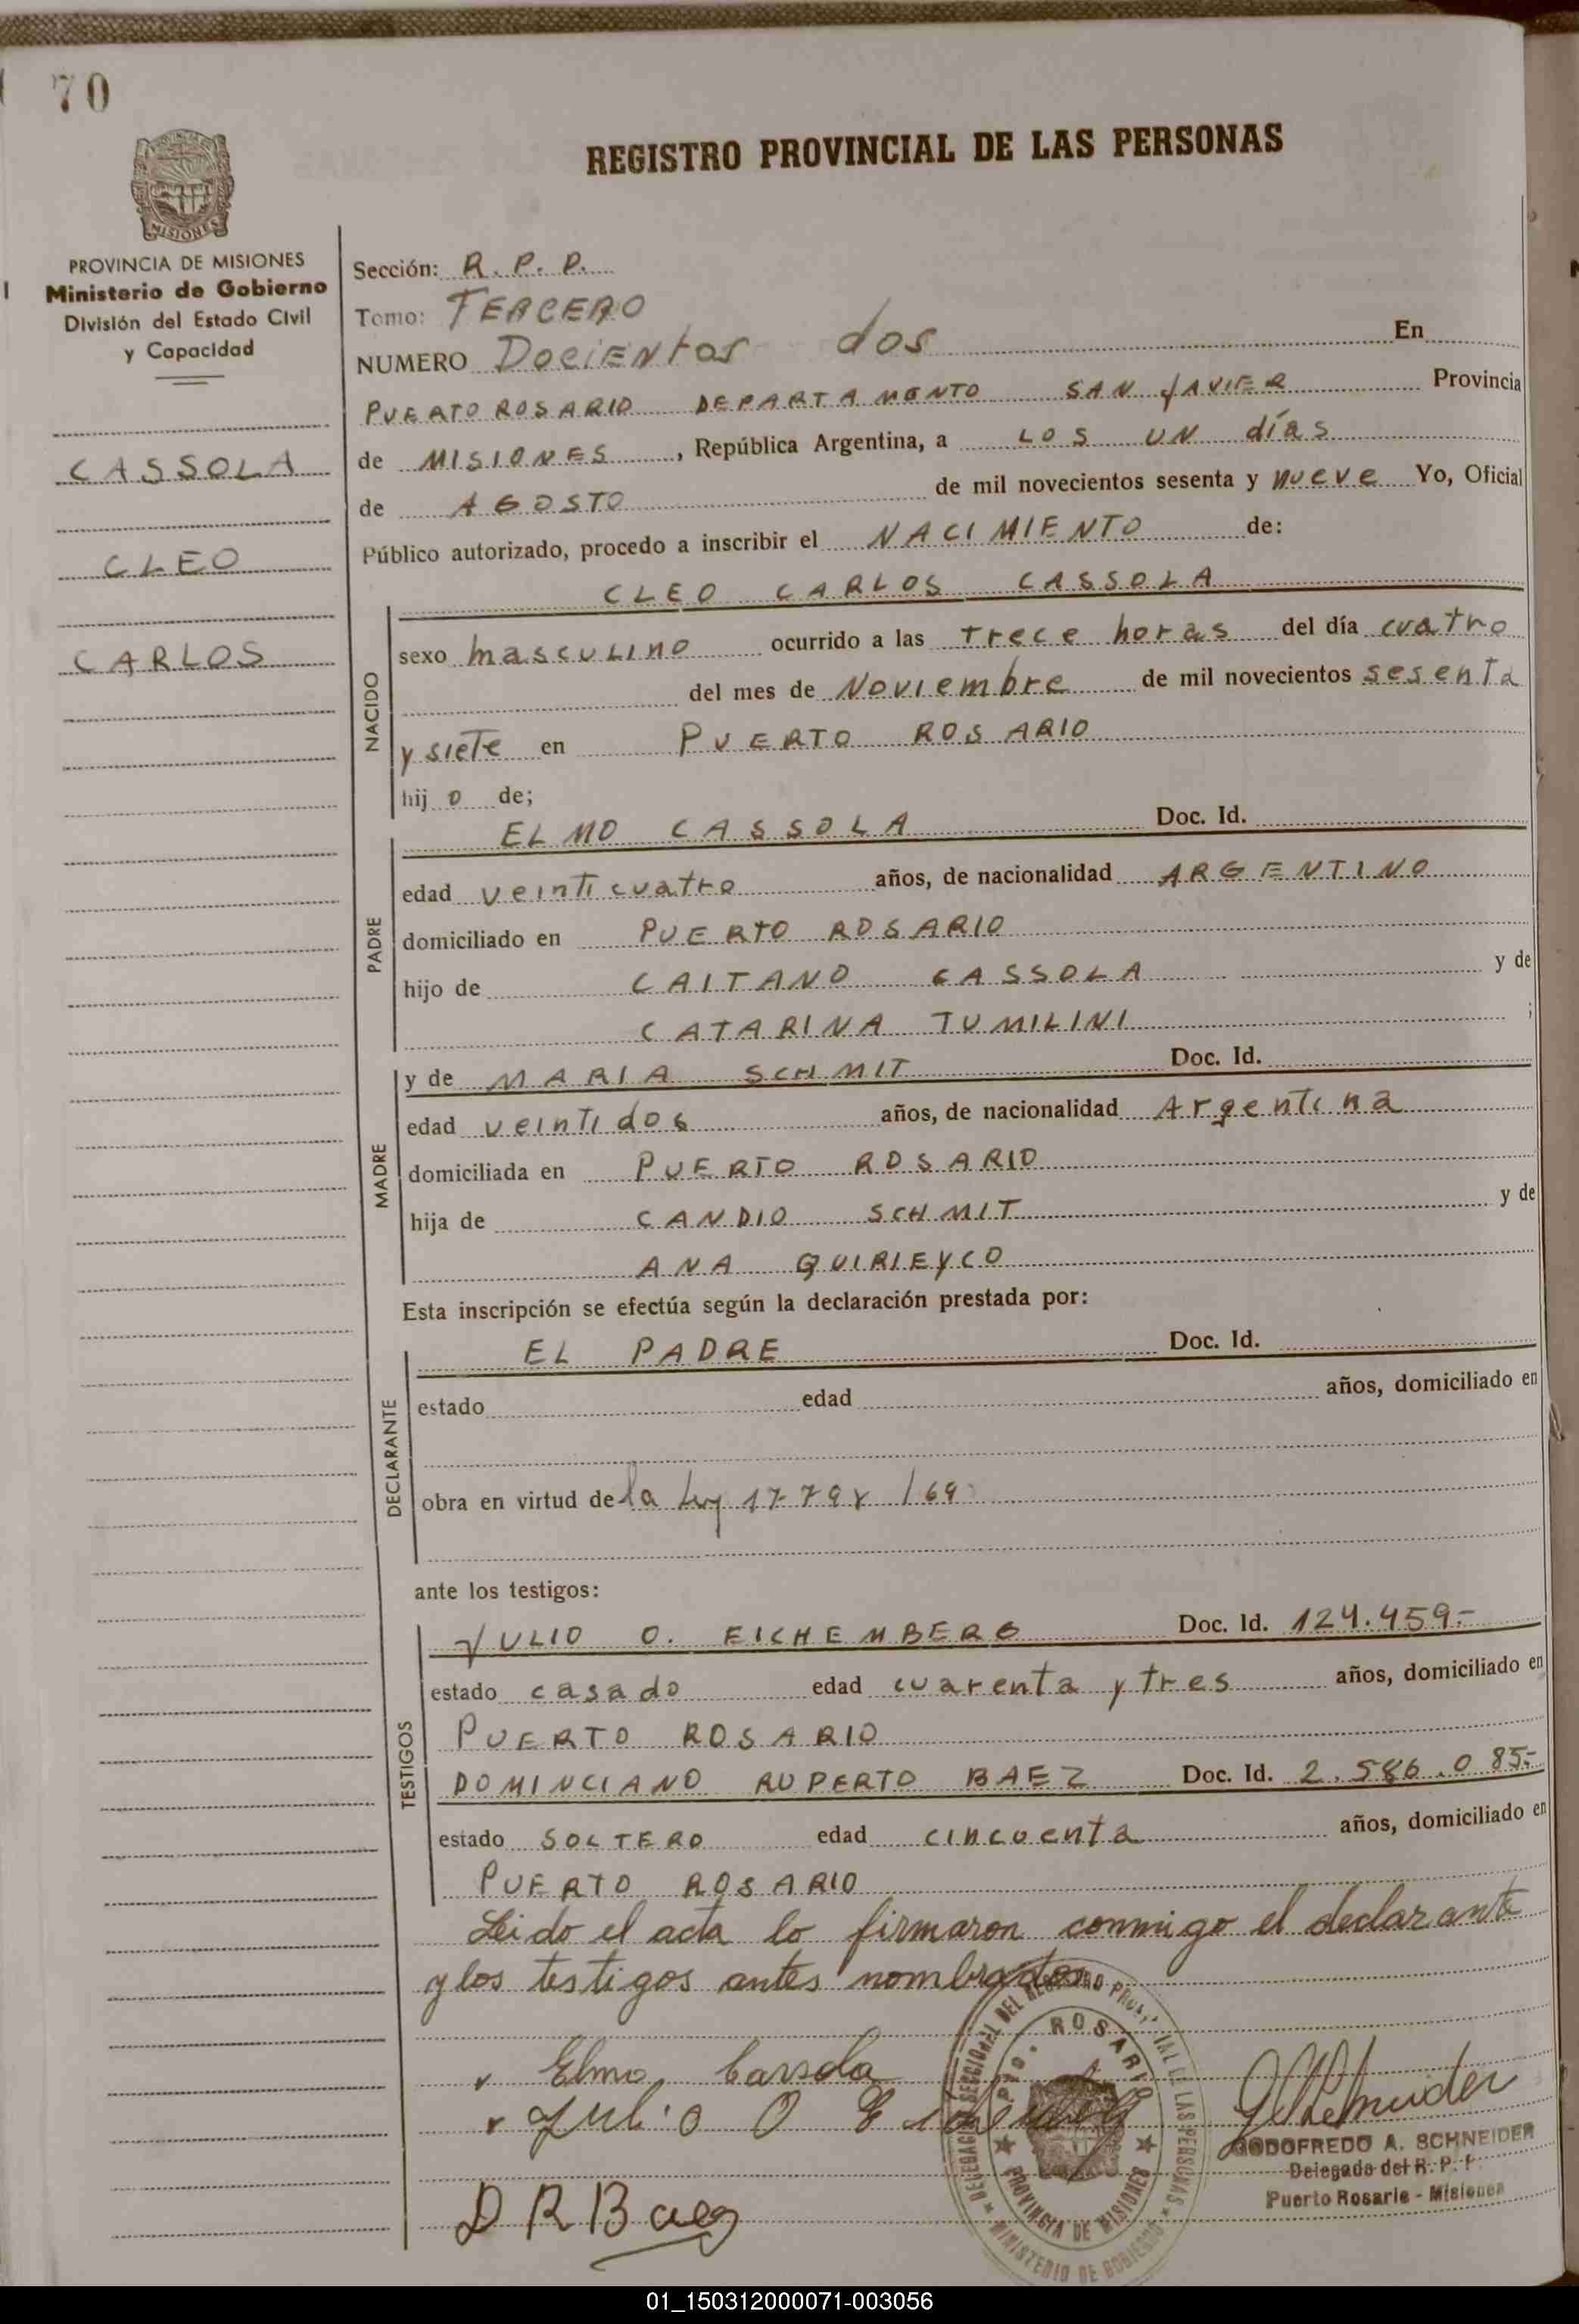 70
REGISTRO PROVINCIAL DE LAS PERSONAS
MISIONES
PROVINCIA DE MISIONES
Ministerio de Gobierno
División del Estado Civil
y Capacidad
CASSOLA
CLEO
CARLOS
Sección: R. P. P.
Tomo: TERCERO
NUMERO DociENtos dos En
PUERTO ROSARIO DEPARTAMENTO SAN JAVIER Provincia
de MISIONES, República Argentina, a LOS UN días
de AGOSTO de mil novecientos sesenta y nueve Yo, Oficial
Público autorizado, procedo a inscribir el NACIMIENTO de:
CLEO CARLOS CASSOLA
NACIDO
sexo masculino ocurrido a las trece horas del día cuatro
del mes de Noviembre de mil novecientos sesenta
y siete en PUERTO ROSARIO
hij o de;
ELMO CASSOLA Doc. Id.
PADRE
edad veinticuatro años, de nacionalidad ARGENTINO
domiciliado en PUERTO ROSARIO
hijo de CAITANO CASSOLA y de
CATARINA TUMILINI ;
y de MARIA SCHMIT Doc. Id.
MADRE
edad veintidos años, de nacionalidad Argentina
domiciliada en PUERTO ROSARIO
hija de CANDIO SCHMIT y de
ANA QUIRIEYCO
Esta inscripción se efectúa según la declaración prestada por:
EL PADRE Doc. Id.
DECLARANTE
estado edad años, domiciliado en
obra en virtud de la Ley /69
ante los testigos:
TESTIGOS
JULIO O. EICHEMBERG Doc. Id. 124.459.-
estado casado edad cuarenta y tres años, domiciliado en
PUERTO ROSARIO
DOMINCIANO RUPERTO BAEZ Doc. Id. 2.586.085.-
estado SOLTERO edad cincuenta años, domiciliado en
PUERTO ROSARIO
Leido el acta lo firmaron conmigo el declarante
y los testigos antes nombrados
Elmo Cassola
Julio O
D R Baez
DELEGACION SECCIONAL DEL REGISTRO PROVINCIAL DE LAS PERSONAS
MINISTERIO DE GOBIERNO
PTO. ROSARIO
PROVINCIA DE MISIONES
GODOFREDO A. SCHNEIDER
Delegado del R. P. P.
Puerto Rosario - Misiones
01_150312000071-003056